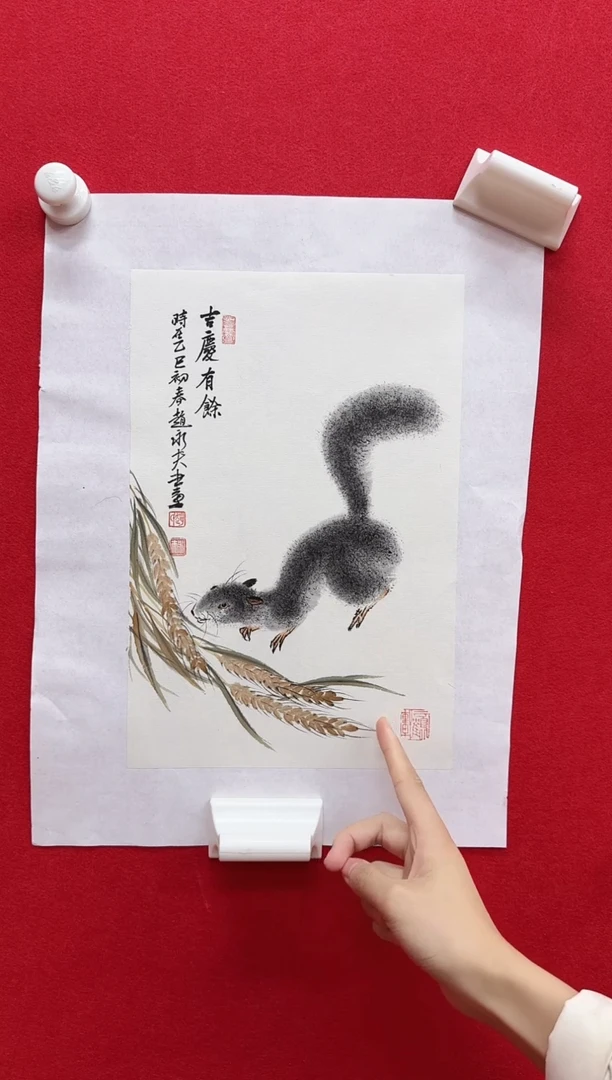 吉慶有餘
時在乙巳初春趙永夫書畫